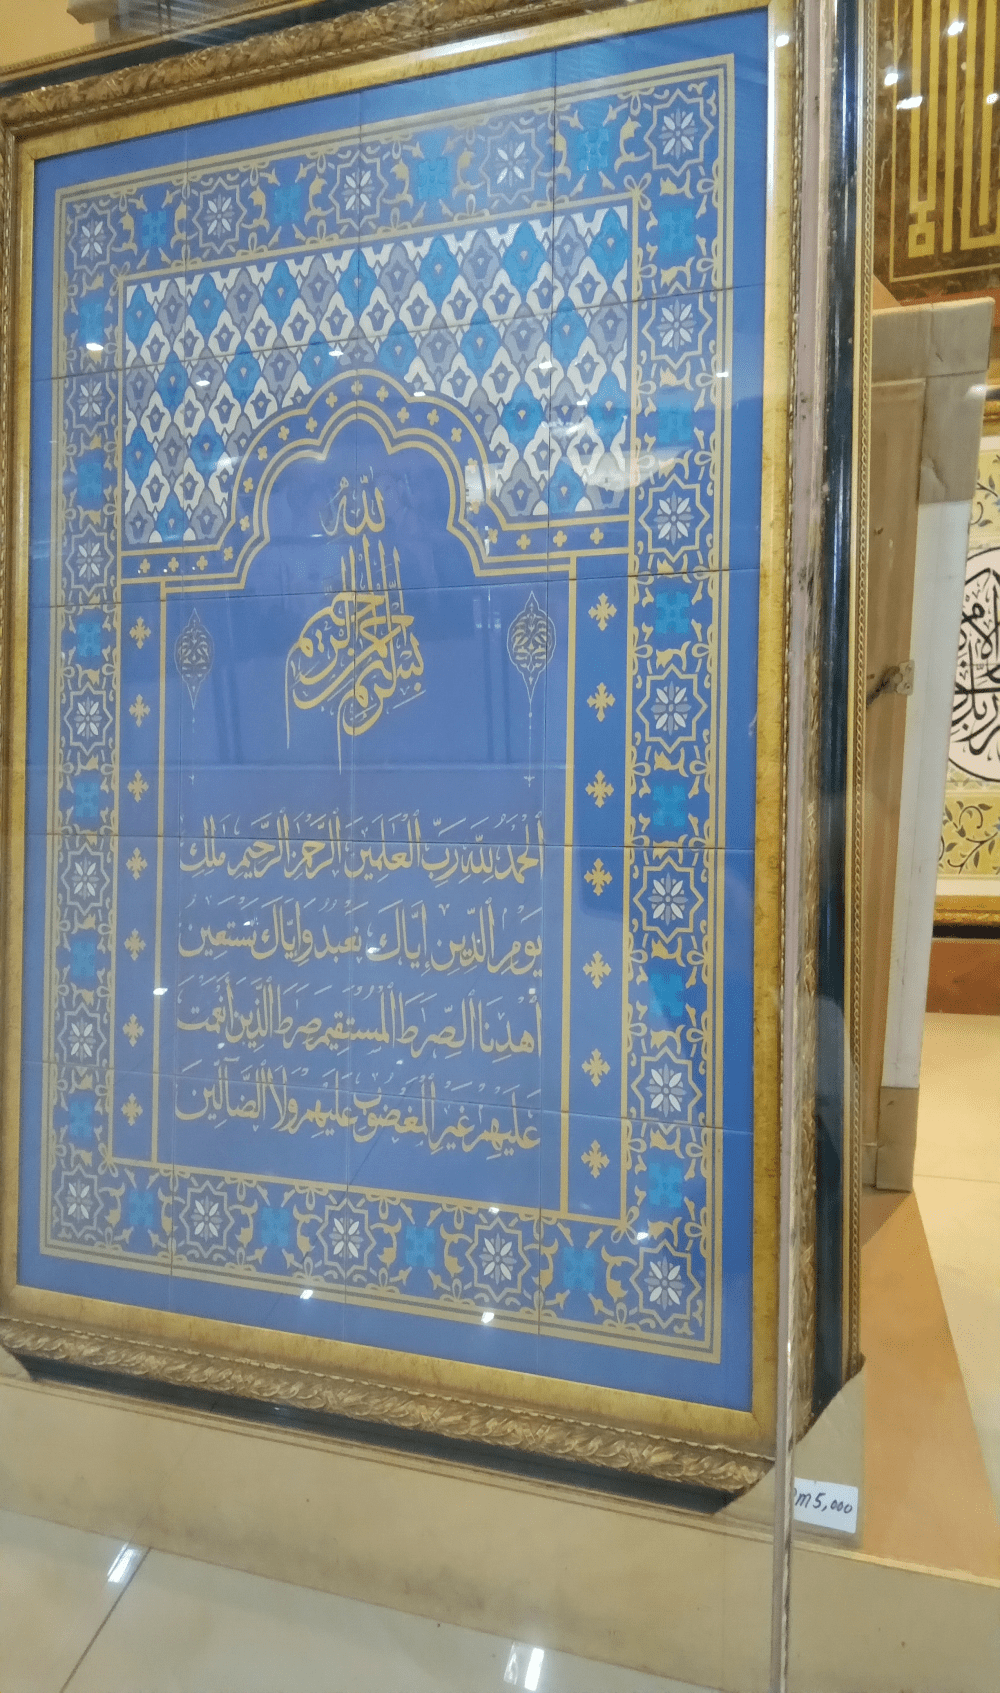 بسم الله الرحمن الرحيم
ٱلْحَمْدُ لِلَّهِ رَبِّ ٱلْعَٰلَمِينَ ٱلرَّحْمَٰنِ ٱلرَّحِيمِ مَٰلِكِ
يَوْمِ ٱلدِّينِ إِيَّاكَ نَعْبُدُ وَإِيَّاكَ نَسْتَعِينُ
ٱهْدِنَا ٱلصِّرَٰطَ ٱلْمُسْتَقِيمَ صِرَٰطَ ٱلَّذِينَ أَنْعَمْتَ
عَلَيْهِمْ غَيْرِ ٱلْمَغْضُوبِ عَلَيْهِمْ وَلَا ٱلضَّآلِّينَ
Rm 5,000